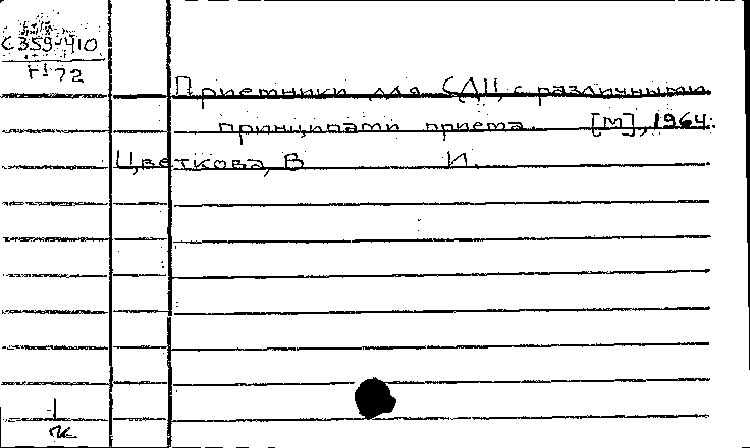 С359-410
Приемники для СДЦ с различными
принципами приема [М], 1964.
Цветкова, В И.